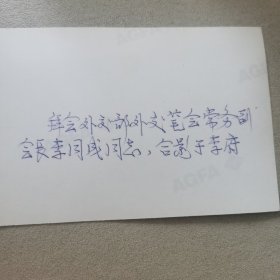 拜会外交部外交笔会常务副
会长李同成同志，合影于李府
AGFA
AGFA